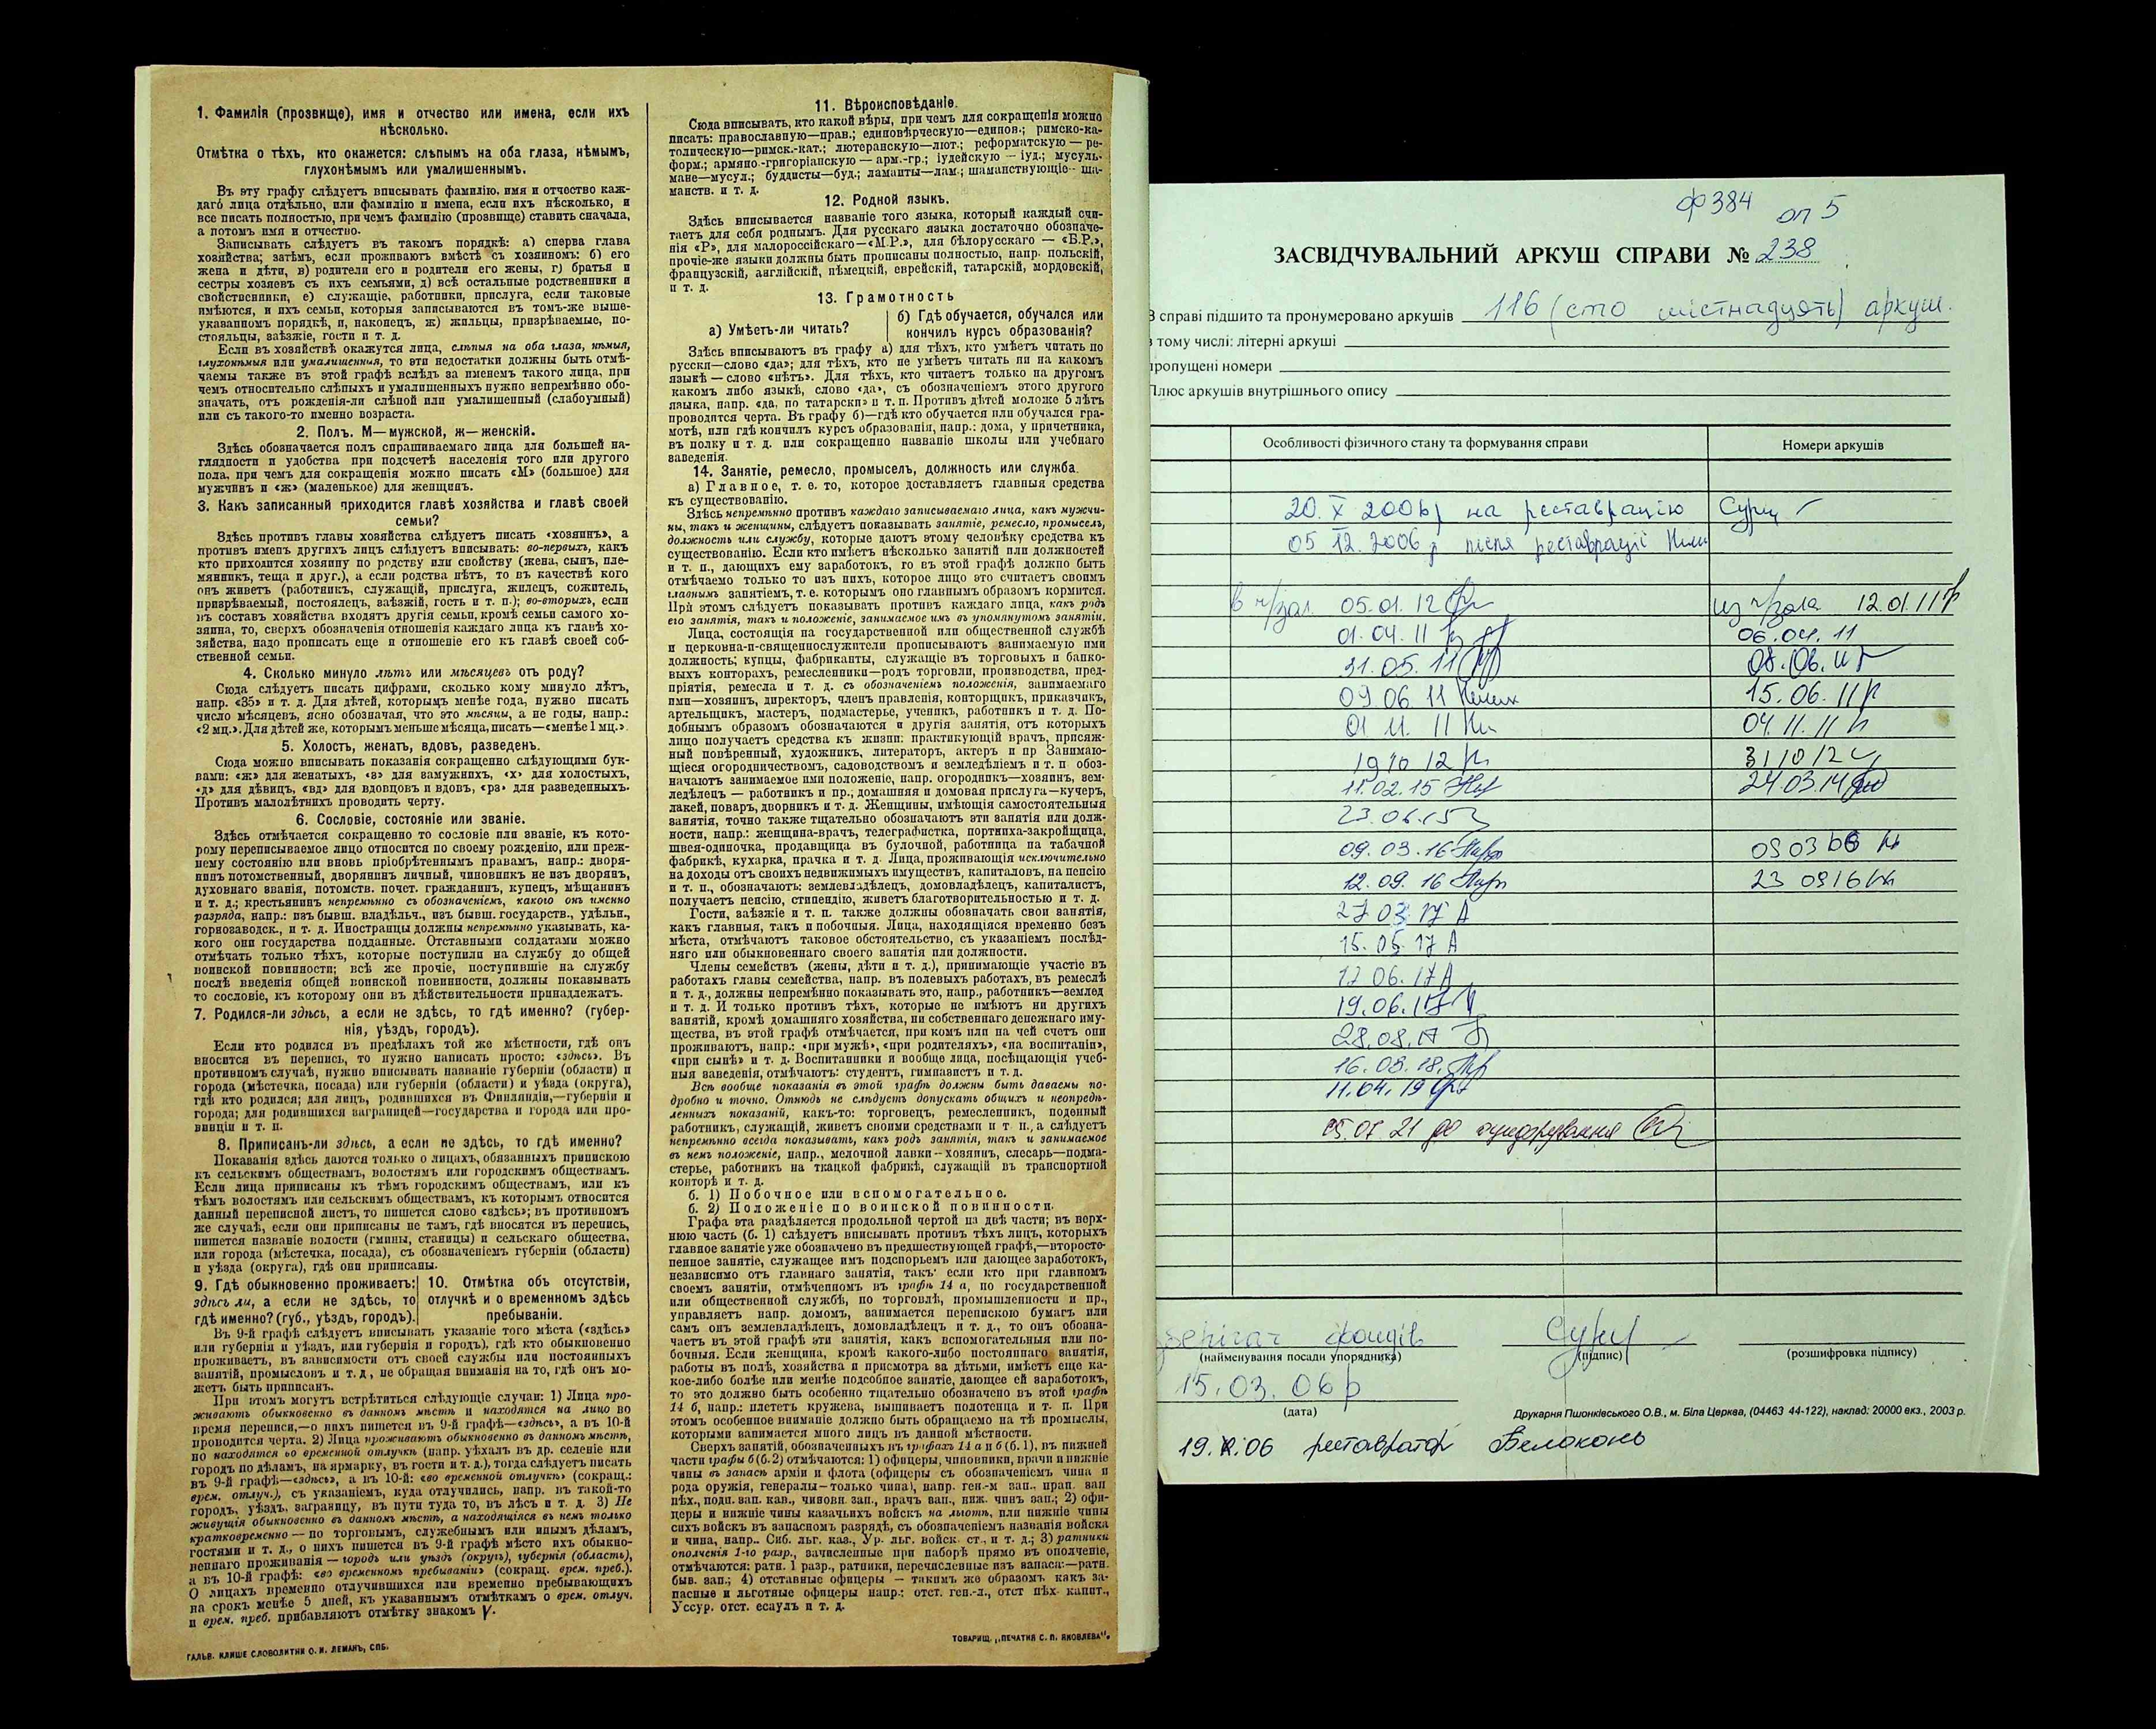 1. Фамилія (прозвище), имя и отчество или имена, если ихъ
нѣсколько.
Отмѣтка о тѣхъ, кто окажется: слѣпымъ на оба глаза, нѣмымъ,
глухонѣмымъ или умалишеннымъ.
Въ эту графу слѣдуетъ вписывать фамилію, имя и отчество каж-
даго лица отдѣльно, или фамилію и имена, если ихъ нѣсколько, и
все писать полностью, при чемъ фамилію (прозвище) ставить сначала,
а потомъ имя и отчество.
Записывать слѣдуетъ въ такомъ порядкѣ: а) сперва глава
хозяйства; затѣмъ, если проживаютъ вмѣстѣ съ хозяиномъ: б) его
жена и дѣти, в) родители его и родители его жены, г) братья и
сестры хозяевъ съ ихъ семьями, д) всѣ остальные родственники и
свойственники, е) служащіе, работники, прислуга, если таковые
имѣются, и ихъ семьи, которыя записываются въ томъ-же выше-
указанномъ порядкѣ, и, наконецъ, ж) жильцы, призрѣваемые, по-
стояльцы, заѣзжіе, гости и т. д.
Если въ хозяйствѣ окажутся лица, слѣпыя на оба глаза, нѣмыя,
глухонѣмыя или умалишенныя, то эти недостатки должны быть отмѣ-
чаемы также въ этой графѣ вслѣдъ за именемъ такого лица, при
чемъ относительно слѣпыхъ и умалишенныхъ нужно непремѣнно обо-
значать, отъ рожденія-ли слѣпой или умалишенный (слабоумный)
или съ такого-то именно возраста.
2. Полъ. М—мужской, ж—женскій.
Здѣсь обозначается полъ спрашиваемаго лица для большей на-
глядности и удобства при подсчетѣ населенія того или другого
пола, при чемъ для сокращенія можно писать «М» (большое) для
мужчинъ и «ж» (маленькое) для женщинъ.
3. Какъ записанный приходится главѣ хозяйства и главѣ своей
семьи?
Здѣсь противъ главы хозяйства слѣдуетъ писать «хозяинъ», а
противъ именъ другихъ лицъ слѣдуетъ вписывать: во-первыхъ, какъ
кто приходится хозяину по родству или свойству (жена, сынъ, пле-
мянникъ, теща и друг.), а если родства нѣтъ, то въ качествѣ кого
онъ живетъ (работникъ, служащій, прислуга, жилецъ, сожитель,
призрѣваемый, постоялецъ, заѣзжій, гость и т. п.); во-вторыхъ, если
въ составъ хозяйства входятъ другія семьи, кромѣ семьи самого хо-
зяина, то, сверхъ обозначенія отношенія каждаго лица къ главѣ хо-
зяйства, надо прописать еще и отношеніе его къ главѣ своей соб-
ственной семьи.
4. Сколько минуло лѣтъ или мѣсяцевъ отъ роду?
Сюда слѣдуетъ писать цифрами, сколько кому минуло лѣтъ,
напр. «35» и т. д. Для дѣтей, которымъ менѣе года, нужно писать
число мѣсяцевъ, ясно обозначая, что это мѣсяцы, а не годы, напр.:
«2 мц.». Для дѣтей же, которымъ меньше мѣсяца, писать—«менѣе 1 мц.».
5. Холостъ, женатъ, вдовъ, разведенъ.
Сюда можно вписывать показанія сокращенно слѣдующими бук-
вами: «ж» для женатыхъ, «з» для замужнихъ, «х» для холостыхъ,
«д» для дѣвицъ, «вд» для вдовцовъ и вдовъ, «рз» для разведенныхъ.
Противъ малолѣтнихъ проводить черту.
6. Сословіе, состояніе или званіе.
Здѣсь отмѣчается сокращенно то сословіе или званіе, къ кото-
рому переписываемое лицо относится по своему рожденію, или преж-
нему состоянію или вновь пріобрѣтеннымъ правамъ, напр.: дворя-
нинъ потомственный, дворянинъ личный, чиновникъ не изъ дворянъ,
духовнаго званія, потомств. почет. гражданинъ, купецъ, мѣщанинъ
и т. д.; крестьянинъ непремѣнно съ обозначеніемъ, какого онъ именно
разряда, напр.: изъ бывш. владѣльч., изъ бывш. государств., удѣльн.,
горнозаводск., и т. д. Иностранцы должны непремѣнно указывать, ка-
кого они государства подданные. Отставными солдатами можно
отмѣчать только тѣхъ, которые поступили на службу до общей
воинской повинности; всѣ же прочіе, поступившіе на службу
послѣ введенія общей воинской повинности, должны показывать
то сословіе, къ которому они въ дѣйствительности принадлежатъ.
7. Родился-ли здѣсь, а если не здѣсь, то гдѣ именно? (губер-
нія, уѣздъ, городъ).
Если кто родился въ предѣлахъ той же мѣстности, гдѣ онъ
вносится въ перепись, то нужно написать просто: «здѣсь». Въ
противномъ случаѣ, нужно вписывать названіе губерніи (области) и
города (мѣстечка, посада) или губерніи (области) и уѣзда (округа),
гдѣ кто родился; для лицъ, родившихся въ Финляндіи,—губерніи и
города; для родившихся заграницей—государства и города или про-
винціи и т. п.
8. Приписанъ-ли здѣсь, а если не здѣсь, то гдѣ именно?
Показанія здѣсь даются только о лицахъ, обязанныхъ припискою
къ сельскимъ обществамъ, волостямъ или городскимъ обществамъ.
Если лица приписаны къ тѣмъ городскимъ обществамъ, или къ
тѣмъ волостямъ или сельскимъ обществамъ, къ которымъ относится
данный переписной листъ, то пишется слово «здѣсь»; въ противномъ
же случаѣ, если они приписаны не тамъ, гдѣ вносятся въ перепись,
пишется названіе волости (гмины, станицы) и сельскаго общества,
или города (мѣстечка, посада), съ обозначеніемъ губерніи (области)
и уѣзда (округа), гдѣ они приписаны.
9. Гдѣ обыкновенно проживаетъ:
здѣсь ли, а если не здѣсь, то
гдѣ именно? (губ., уѣздъ, городъ).
10. Отмѣтка объ отсутствіи,
отлучкѣ и о временномъ здѣсь
пребываніи.
Въ 9-й графѣ слѣдуетъ вписывать указаніе того мѣста («здѣсь»
или губернія и уѣздъ, или губернія и городъ), гдѣ кто обыкновенно
проживаетъ, въ зависимости отъ своей службы или постоянныхъ
занятій, промысловъ и т. д., не обращая вниманія на то, гдѣ онъ мо-
жетъ быть приписанъ.
При этомъ могутъ встрѣтиться слѣдующіе случаи: 1) Лица про-
живаютъ обыкновенно въ данномъ мѣстѣ и находятся на лицо во
время переписи,—о нихъ пишется въ 9-й графѣ—«здѣсь», а въ 10-й
проводится черта. 2) Лица проживаютъ обыкновенно въ данномъ мѣстѣ,
но находятся во временной отлучкѣ (напр. уѣхалъ въ др. селеніе или
городъ по дѣламъ, на ярмарку, въ гости и т. д.), тогда слѣдуетъ писать
въ 9-й графѣ—«здѣсь», а въ 10-й: «во временной отлучкѣ» (сокращ.:
врем. отлуч.), съ указаніемъ, куда отлучились, напр. въ такой-то
городъ, уѣздъ, заграницу, въ пути туда то, въ лѣсъ и т. д. 3) Не
живущія обыкновенно въ данномъ мѣстѣ, а находящіяся въ немъ только
кратковременно — по торговымъ, служебнымъ или инымъ дѣламъ,
гостями и т. д., о нихъ пишется въ 9-й графѣ мѣсто ихъ обыкно-
веннаго проживанія — городъ или уѣздъ (округъ), губернія (область),
а въ 10-й графѣ: «во временномъ пребываніи» (сокращ. врем. преб.).
О лицахъ временно отлучившихся или временно пребывающихъ
на срокъ менѣе 5 дней, къ указаннымъ отмѣткамъ о врем. отлуч.
и врем. преб. прибавляютъ отмѣтку знакомъ V.
ГАЛЬВ. КЛИШЕ СЛОВОЛИТНИ О. И. ЛЕМАНЪ, СПБ.
11. Вѣроисповѣданіе.
Сюда вписывать, кто какой вѣры, при чемъ для сокращенія можно
писать: православную—прав.; единовѣрческую—единов.; римско-ка-
толическую—римск.-кат.; лютеранскую—лют.; реформатскую — ре-
форм.; армяно-григоріанскую — арм.-гр.; іудейскую — іуд.; мусуль-
мане—мусул.; буддисты—буд.; ламаиты—лам.; шаманствующіе— ша-
манств. и т. д.
12. Родной языкъ.
Здѣсь вписывается названіе того языка, который каждый счи-
таетъ для себя роднымъ. Для русскаго языка достаточно обозначе-
нія «Р», для малороссійскаго—«М.Р.», для бѣлорусскаго — «Б.Р.»,
прочіе-же языки должны быть прописаны полностью, напр. польскій,
французскій, англійскій, нѣмецкій, еврейскій, татарскій, мордовскій,
и т. д.
13. Грамотность
а) Умѣетъ-ли читать?
б) Гдѣ обучается, обучался или
кончилъ курсъ образованія?
Здѣсь вписываютъ въ графу а) для тѣхъ, кто умѣетъ читать по
русски—слово «да»; для тѣхъ, кто не умѣетъ читать ни на какомъ
языкѣ — слово «нѣтъ». Для тѣхъ, кто читаетъ только на другомъ
какомъ либо языкѣ, слово «да», съ обозначеніемъ этого другого
языка, напр. «да, по татарски» и т. п. Противъ дѣтей моложе 5 лѣтъ
проводится черта. Въ графу б)—гдѣ кто обучается или обучался гра-
мотѣ, или гдѣ кончилъ курсъ образованія, напр.: дома, у причетника,
въ полку и т. д. или сокращенно названіе школы или учебнаго
заведенія.
14. Занятіе, ремесло, промыселъ, должность или служба.
а) Главное, т. е. то, которое доставляетъ главныя средства
къ существованію.
Здѣсь непремѣнно противъ каждаго записываемаго лица, какъ мужчи-
ны, такъ и женщины, слѣдуетъ показывать занятіе, ремесло, промыселъ,
должность или службу, которые даютъ этому человѣку средства къ
существованію. Если кто имѣетъ нѣсколько занятій или должностей
и т. п., дающихъ ему заработокъ, то въ этой графѣ должно быть
отмѣчаемо только то изъ нихъ, которое лицо это считаетъ своимъ
главнымъ занятіемъ, т. е. которымъ оно главнымъ образомъ кормится.
При этомъ слѣдуетъ показывать противъ каждаго лица, какъ родъ
его занятія, такъ и положеніе, занимаемое имъ въ упомянутомъ занятіи.
Лица, состоящія на государственной или общественной службѣ
и церковно-и-священнослужители прописываютъ занимаемую ими
должность; купцы, фабриканты, служащіе въ торговыхъ и банко-
выхъ конторахъ, ремесленники—родъ торговли, производства, пред-
пріятія, ремесла и т. д. съ обозначеніемъ положенія, занимаемаго
ими—хозяинъ, директоръ, членъ правленія, конторщикъ, приказчикъ,
артельщикъ, мастеръ, подмастерье, ученикъ, работникъ и т. д. По-
добнымъ образомъ обозначаются и другія занятія, отъ которыхъ
лицо получаетъ средства къ жизни: практикующій врачъ, присяж-
ный повѣренный, художникъ, литераторъ, актеръ и пр. Занимаю-
щіеся огородничествомъ, садоводствомъ и земледѣліемъ и т. п. обоз-
начаютъ занимаемое ими положеніе, напр. огородникъ—хозяинъ, зем-
ледѣлецъ — работникъ и пр.; домашняя и домовая прислуга—кучеръ,
лакей, поваръ, дворникъ и т. д. Женщины, имѣющія самостоятельныя
занятія, точно также тщательно обозначаютъ эти занятія или долж-
ности, напр.: женщина-врачъ, телеграфистка, портниха-закройщица,
швея-одиночка, продавщица въ булочной, работница на табачной
фабрикѣ, кухарка, прачка и т. д. Лица, проживающія исключительно
на доходы отъ своихъ недвижимыхъ имуществъ, капиталовъ, на пенсію
и т. п., обозначаютъ: землевладѣлецъ, домовладѣлецъ, капиталистъ,
получаетъ пенсію, стипендію, живетъ благотворительностью и т. д.
Гости, заѣзжіе и т. п. также должны обозначать свои занятія,
какъ главныя, такъ и побочныя. Лица, находящіяся временно безъ
мѣста, отмѣчаютъ таковое обстоятельство, съ указаніемъ послѣд-
няго или обыкновеннаго своего занятія или должности.
Члены семействъ (жены, дѣти и т. д.), принимающіе участіе въ
работахъ главы семейства, напр. въ полевыхъ работахъ, въ ремеслѣ
и т. д., должны непремѣнно показывать это, напр., работникъ—землед
и т. д. И только противъ тѣхъ, которые не имѣютъ ни другихъ
занятій, кромѣ домашняго хозяйства, ни собственнаго денежнаго иму-
щества, въ этой графѣ отмѣчается, при комъ или на чей счетъ они
проживаютъ, напр.: «при мужѣ», «при родителяхъ», «на воспитаніи»,
«при сынѣ» и т. д. Воспитанники и вообще лица, посѣщающія учеб-
ныя заведенія, отмѣчаютъ: студентъ, гимназистъ и т. д.
Всѣ вообще показанія въ этой графѣ должны быть даваемы по-
дробно и точно. Отнюдь не слѣдуетъ допускать общихъ и неопредѣ-
ленныхъ показаній, какъ-то: торговецъ, ремесленникъ, поденный
работникъ, служащій, живетъ своими средствами и т. п., а слѣдуетъ
непремѣнно всегда показывать, какъ родъ занятія, такъ и занимаемое
въ немъ положеніе, напр., мелочной лавки—хозяинъ, слесарь—подма-
стерье, работникъ на ткацкой фабрикѣ, служащій въ транспортной
конторѣ и т. д.
б. 1) Побочное или вспомогательное.
б. 2) Положеніе по воинской повинности.
Графа эта раздѣляется продольной чертой на двѣ части; въ верх-
нюю часть (б. 1) слѣдуетъ вписывать противъ тѣхъ лицъ, которыхъ
главное занятіе уже обозначено въ предшествующей графѣ,—второсте-
пенное занятіе, служащее имъ подспорьемъ или дающее заработокъ,
независимо отъ главнаго занятія, такъ: если кто при главномъ
своемъ занятіи, отмѣченномъ въ графѣ 14 а, по государственной
или общественной службѣ, по торговлѣ, промышленности и пр.,
управляетъ напр. домомъ, занимается перепискою бумагъ или
самъ онъ землевладѣлецъ, домовладѣлецъ и т. д., то онъ обозна-
чаетъ въ этой графѣ эти занятія, какъ вспомогательныя или по-
бочныя. Если женщина, кромѣ какого-либо постояннаго занятія,
работы въ полѣ, хозяйства и присмотра за дѣтьми, имѣетъ еще ка-
кое-либо болѣе или менѣе подсобное занятіе, дающее ей заработокъ,
то это должно быть особенно тщательно обозначено въ этой графѣ
14 б, напр.: плететъ кружева, вышиваетъ полотенца и т. п. При
этомъ особенное вниманіе должно быть обращаемо на тѣ промыслы,
которыми занимается много лицъ въ данной мѣстности.
Сверхъ занятій, обозначенныхъ въ графахъ 14 а и б (б. 1), въ нижней
части графы б (б. 2) отмѣчаются: 1) офицеры, чиновники, врачи и нижніе
чины въ запасѣ арміи и флота (офицеры съ обозначеніемъ чина и
рода оружія, генералы—только чина), напр. ген.-м зап., прап. зап
пѣх., подп. зап. кав., чиновн. зап., врачъ зап., ниж. чинъ зап.; 2) офи-
церы и нижніе чины казачьихъ войскъ на льготѣ, или нижніе чины
сихъ войскъ въ запасномъ разрядѣ, съ обозначеніемъ названія войска
и чина, напр.. Сиб. льг. каз., Ур. льг. войск. ст., и т. д.; 3) ратники
ополченія 1-го разр., зачисленные при наборѣ прямо въ ополченіе,
отмѣчаются: ратн. 1 разр., ратники, перечисленные изъ запаса:—ратн.
быв. зап.; 4) отставные офицеры — такимъ же образомъ какъ за-
пасные и льготные офицеры напр.: отст. ген.-л., отст пѣх. капит.,
Уссур. отст. есаулъ и т. д.
ТОВАРИЩ. „ПЕЧАТНЯ С. П. ЯКОВЛЕВА“.
ф 384 оп 5
ЗАСВІДЧУВАЛЬНИЙ АРКУШ СПРАВИ № 238
В справі підшито та пронумеровано аркушів 116 (сто шістнадцять) аркуш.
в тому числі: літерні аркуші
пропущені номери
Плюс аркушів внутрішнього опису
Особливості фізичного стану та формування справи
Номери аркушів
20. X 2006р на реставрацію
05 12. 2006 р після реставрації
в ч/зал 05.01.12
из ч/зала 12.01.11
01.04.11
06.04.11
31.05.11
08.06.11
09 06 11
15.06.11
01 11 11
04.11.11
19 10 12
31 10 12
11.02.15
24.03.14
23.06.15
09.03.16
12.09.16
23 09 16
27 03 17
15.05.17
12 06.17
19.06.17
28.08.17
16.08.18
11.04.19
05.07.21 до оцифрування
зберігач фондів
(найменування посади упорядника)
(підпис)
(розшифровка підпису)
15.03.06р
(дата)
Друкарня Пшонківського О.В., м. Біла Церква, (04463 44-122), наклад: 20000 екз., 2003 р.
19.X.06 реставратор Белоконь